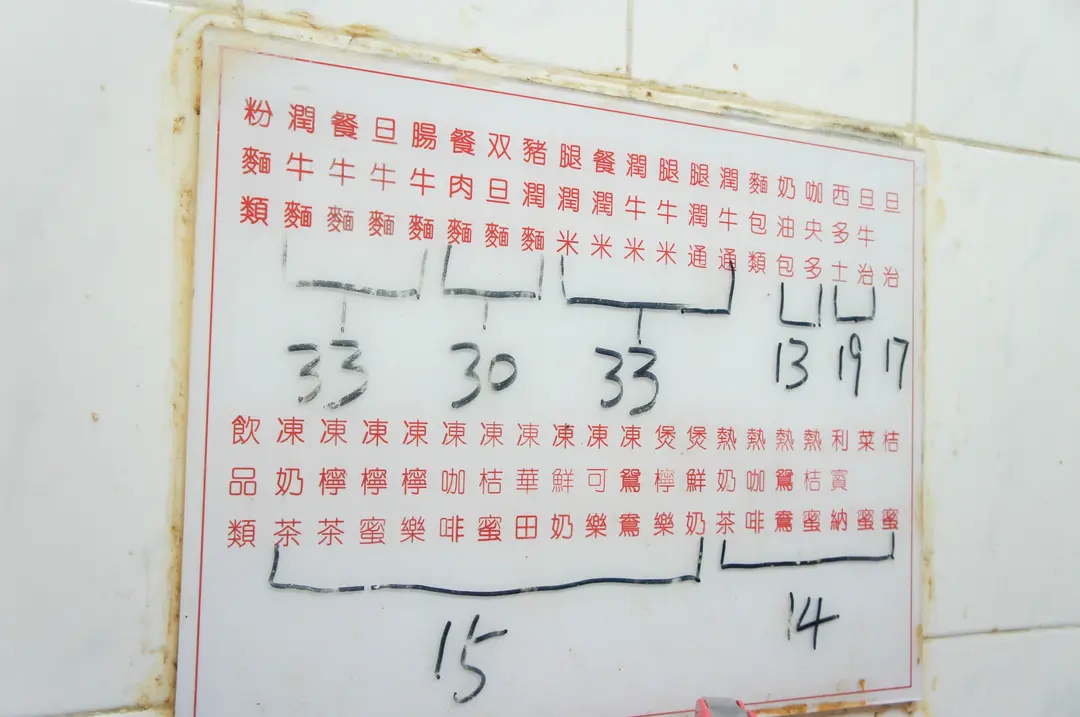 粉麵類
潤牛麵
餐牛麵
旦牛麵
腸牛麵
餐肉麵
双旦麵
豬潤麵
腿潤米
餐潤米
潤牛米
腿牛米
腿潤通
潤牛通
麵包類
奶油包
咖央多
西多士
旦牛治
旦治
33
30
33
13
19
17
飲品類
凍奶茶
凍檸茶
凍檸蜜
凍檸樂
凍咖啡
凍桔蜜
凍華田
凍鮮奶
凍可樂
凍鴛鴦
煲檸樂
煲鮮奶
熱奶茶
熱咖啡
熱鴛鴦
熱桔蜜
利賓納
菜蜜
桔蜜
15
14